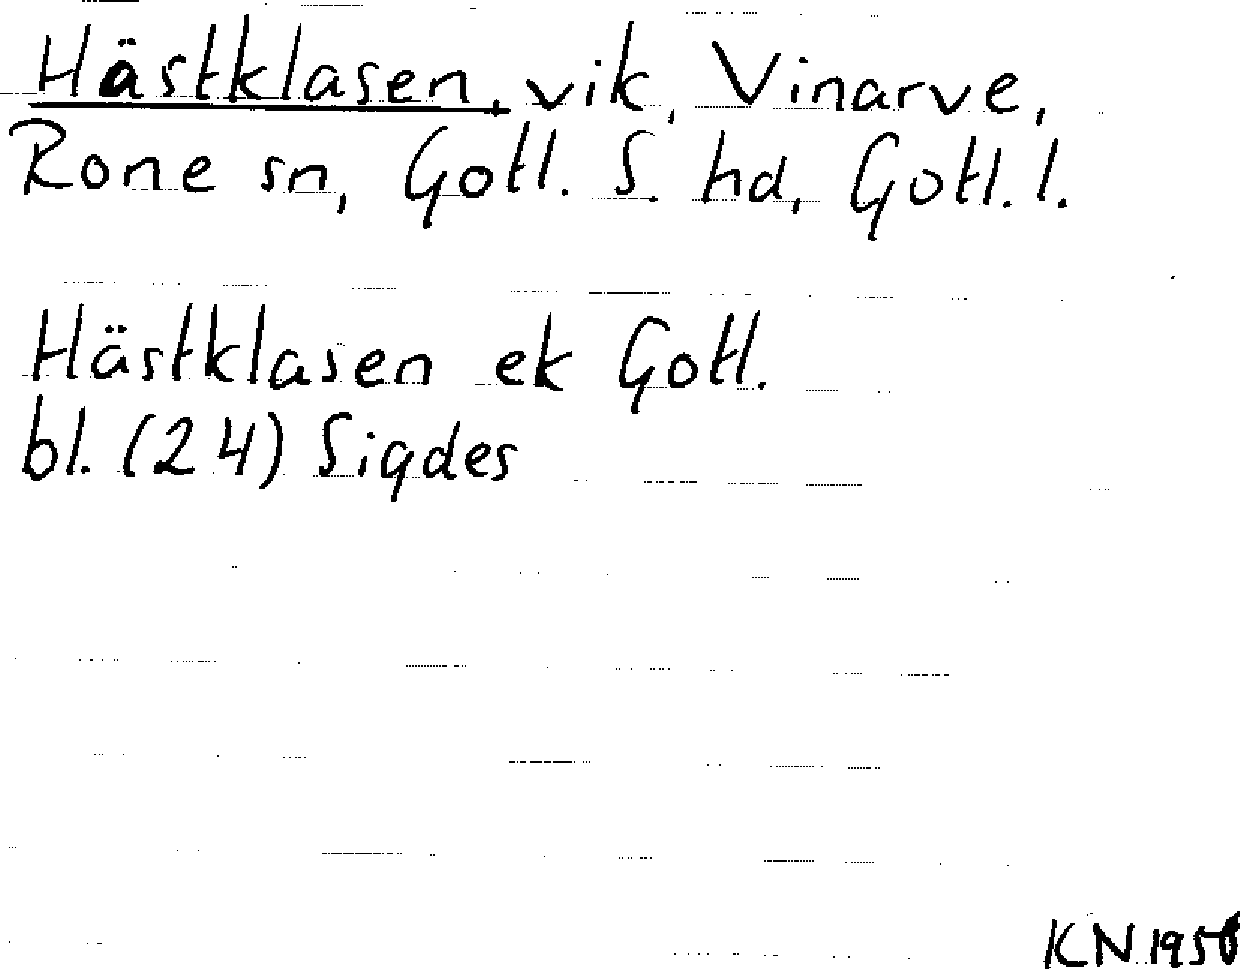 Hästklasen, vik, Vinarve,
Rone sn, Gotl. S. hd, Gotl. l.
Hästklasen ek Gotl.
bl. (24) Sigdes
KN